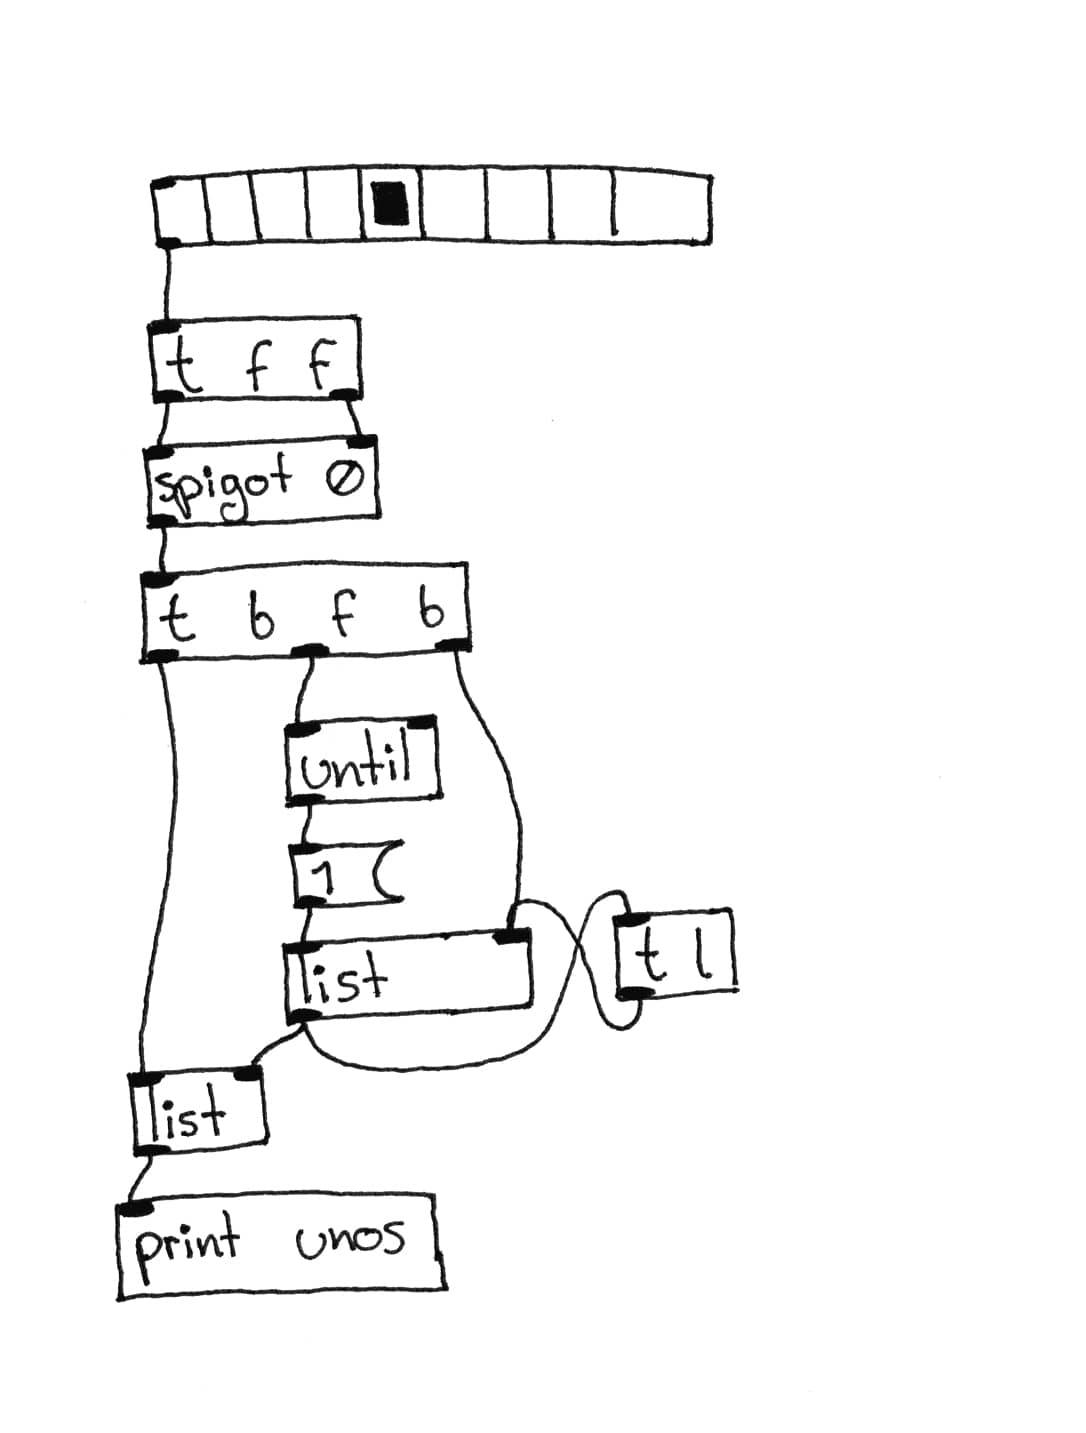 t f f
spigot 0
t b f b
until
1
list
t l
list
print unos